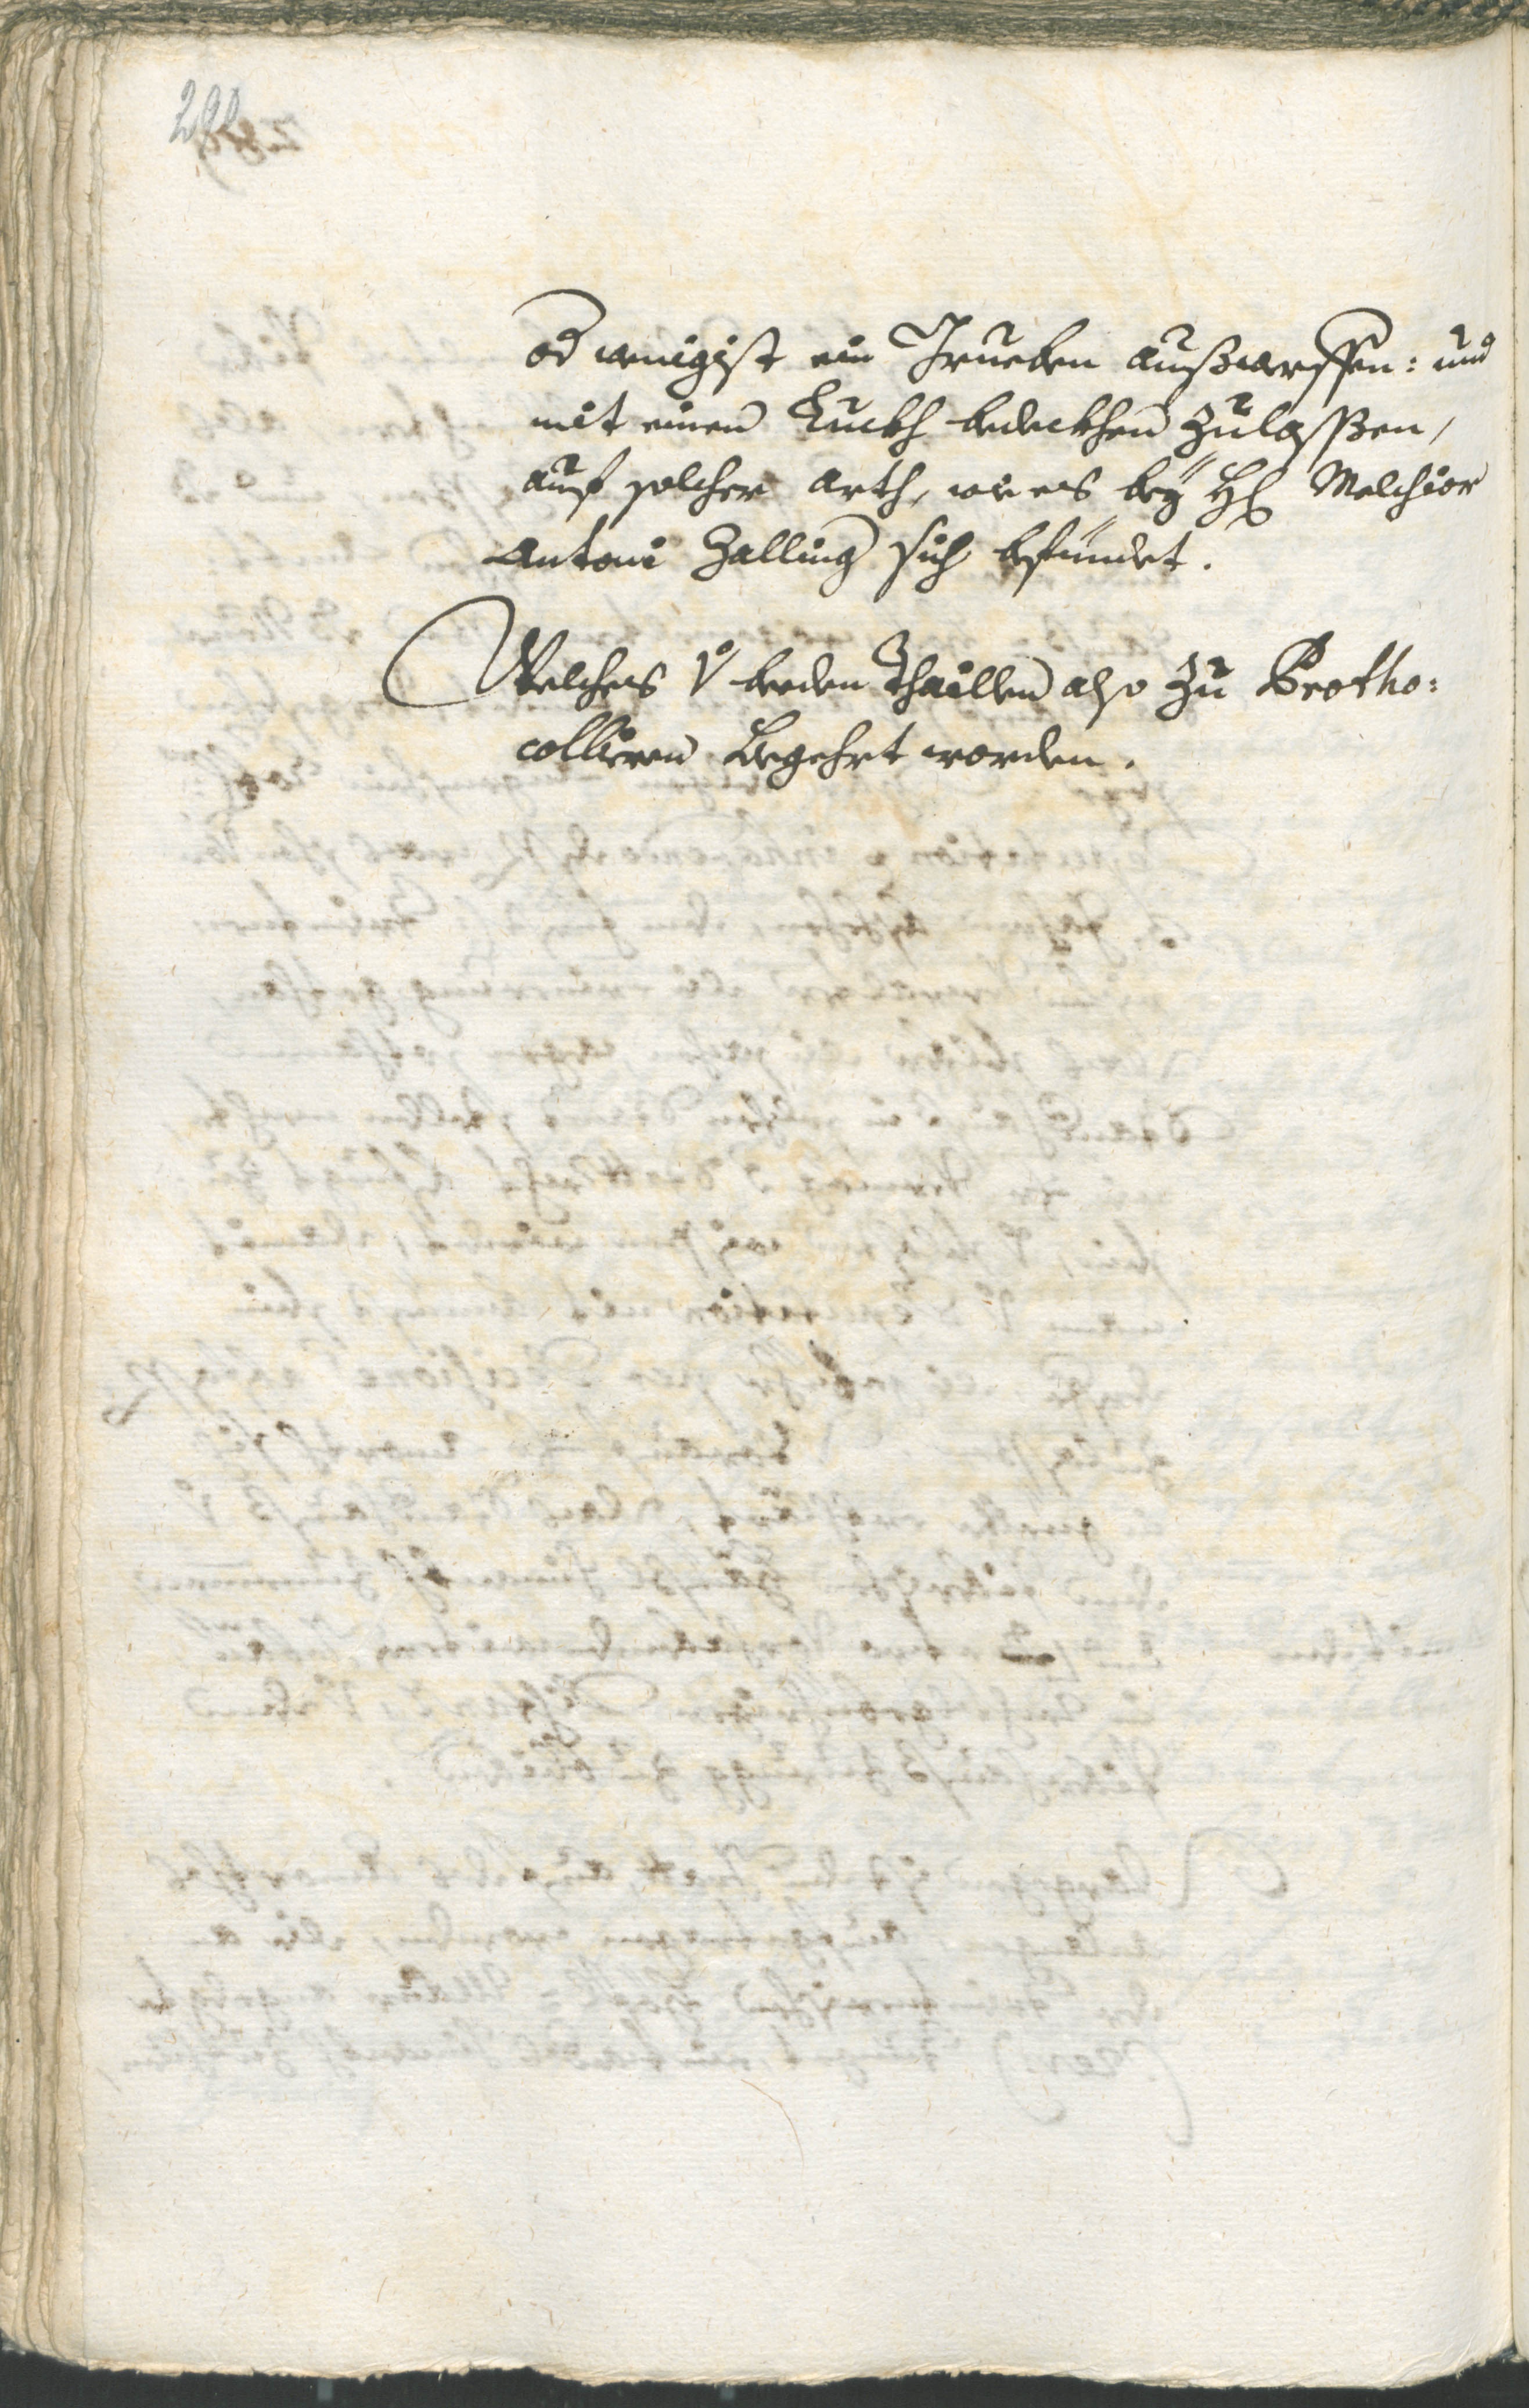 290
od wenigist ein Trueben außwerffen: und
mit einen Luckh bedeckhen zulassen,
auf solcher arth, wie es bey H: Melchior
Antoni Zalling sich befündet.
Welches v beeden Thaillen also zu Protho:
colliren begehrt worden.